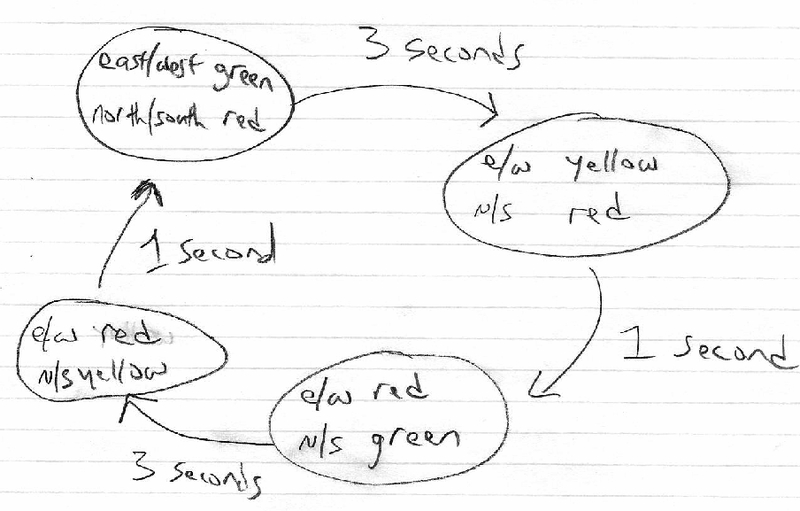 east/west green
north/south red
3 seconds
e/w yellow
N/S red
1 second
e/w red
N/S green
3 seconds
e/w red
N/S yellow
1 second